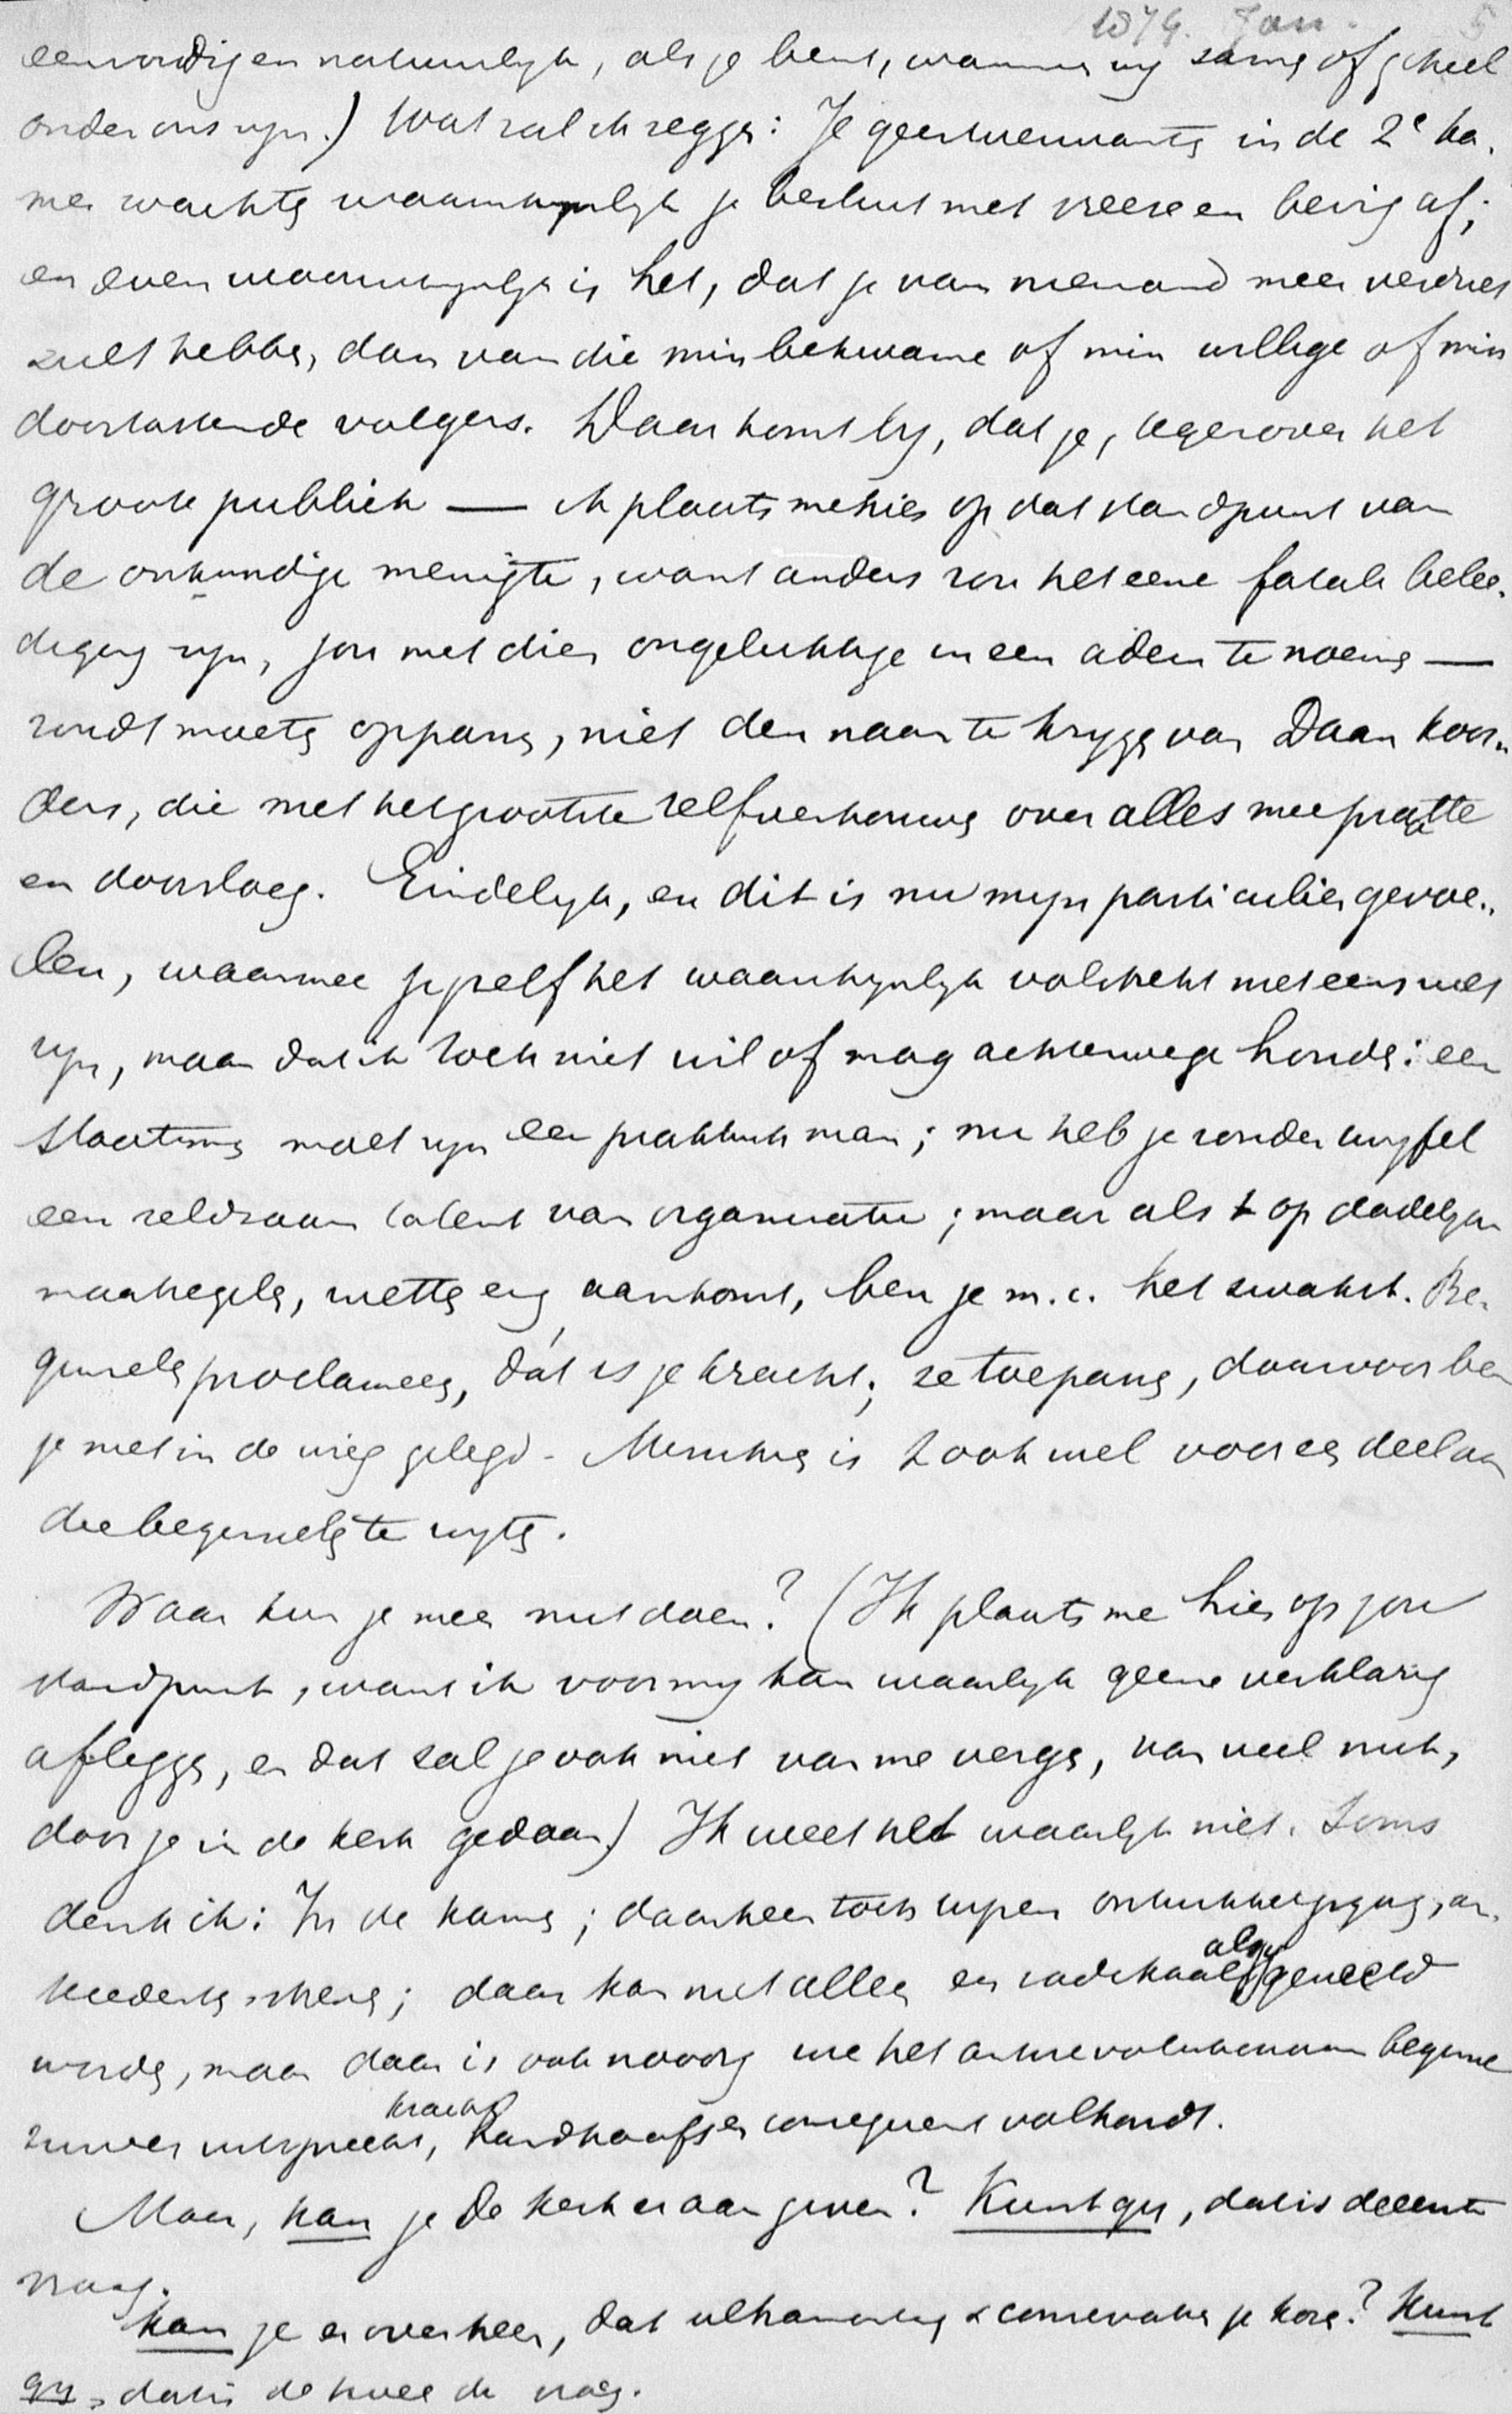 1874. Jan. 5
eenvoudig en natuurlyk, als je bent, wanneer wy samen of geheel
onder ons zyn.) Wat zal ik zeggen: Je geestverwanten in de 2e Ka-
mer wachten waarschynlyk je besluit met vreeze en beving af;
en even waarschynlyk is het, dat je van niemand meer verdriet
zult hebben, dan van die min bekwame of min willige of min
doortastende volgers. Daar komt by, dat je, tegenover het
groote publiek — ik plaats me hier op dat standpunt van
de onkundige menigte, want anders zou het eene fatale belee-
diging zyn, jou met dien ongelukkige in een adem te noemen —
zoudt moeten oppassen, niet den naam te krygen van Daan Koor-
ders, die met het grootste zelfvertrouwen over alles meepraatte
en doorsloeg. Eindelyk, en dit is nu myn particulier gevoe-
len, waarmee jy zelf het waarschynlyk volstrekt niet eens zult
zyn, maar dat ik toch niet wil of mag achterwege houden: een
staatsman moet zyn een praktisch man; nu heb je zonder twyfel
een zeldzaam talent van organisatie; maar als t op dadelyke
maatregelen, wetten enz. aankomt, ben je m.i. het zwakst. Be-
ginselen proclameeren, dát is je kracht; ze toepassen, daarvoor ben
je niet in de wieg gelegd. Misschien is t ook wel voor een deel aan
die beginselen te wyten.
Waar kun je meer nut doen? (Ik plaats me hier op jou
standpunt, want ik voor my kan waarlyk geene verklaring
afleggen, en dat zal je ook niet van me vergen, van veel nut,
door je in de kerk gedaan) Ik weet het waarlyk niet. Soms
denk ik: In de kamer; daarheen toch
daar kan niet alleen een radikaal als gy
worden, maar daar is ook noodig die het antirevolutionaire beginsel
zuiver uitspreekt, krachtig handhaaft en consequent volhoudt.
Maar, kan je de kerk er aan geven? Kunt gy, dat is de eerste
vraag.
Kan je er over heen, dat ultramontanen & conservatieven je kozen? Kunt
gy, dat is de tweede vraag.